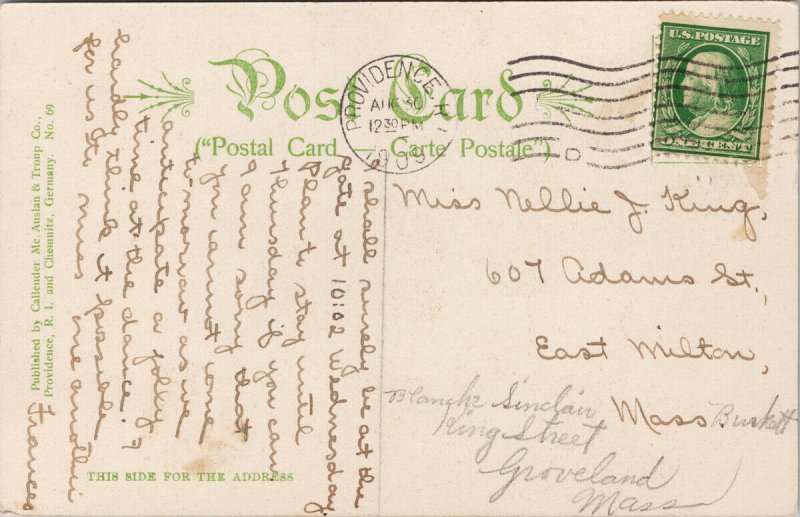 Post Card
("Postal Card — Carte Postale")
PROVIDENCE, R.I.
AUG 30
12 30 PM
1909
D
U.S. POSTAGE
ONE CENT
Miss Nellie J. King,
607 Adams St.,
East Milton,
Mass
Burkett
Blanche Sinclair
King Street
Groveland
Mass
I shall surely be at the
gate at 10:02 Wednesday
Plan to stay until
Thursday if you can
I am sorry that
you cannot come
to-morrow as we
anticipate a jolly
time at the dance.
hardly think it possible
for us to miss one another
Frances
THIS SIDE FOR THE ADDRESS
Published by Callender Mc. Auslan & Troup Co.,
Providence, R. I. and Chemnitz, Germany. No. 69